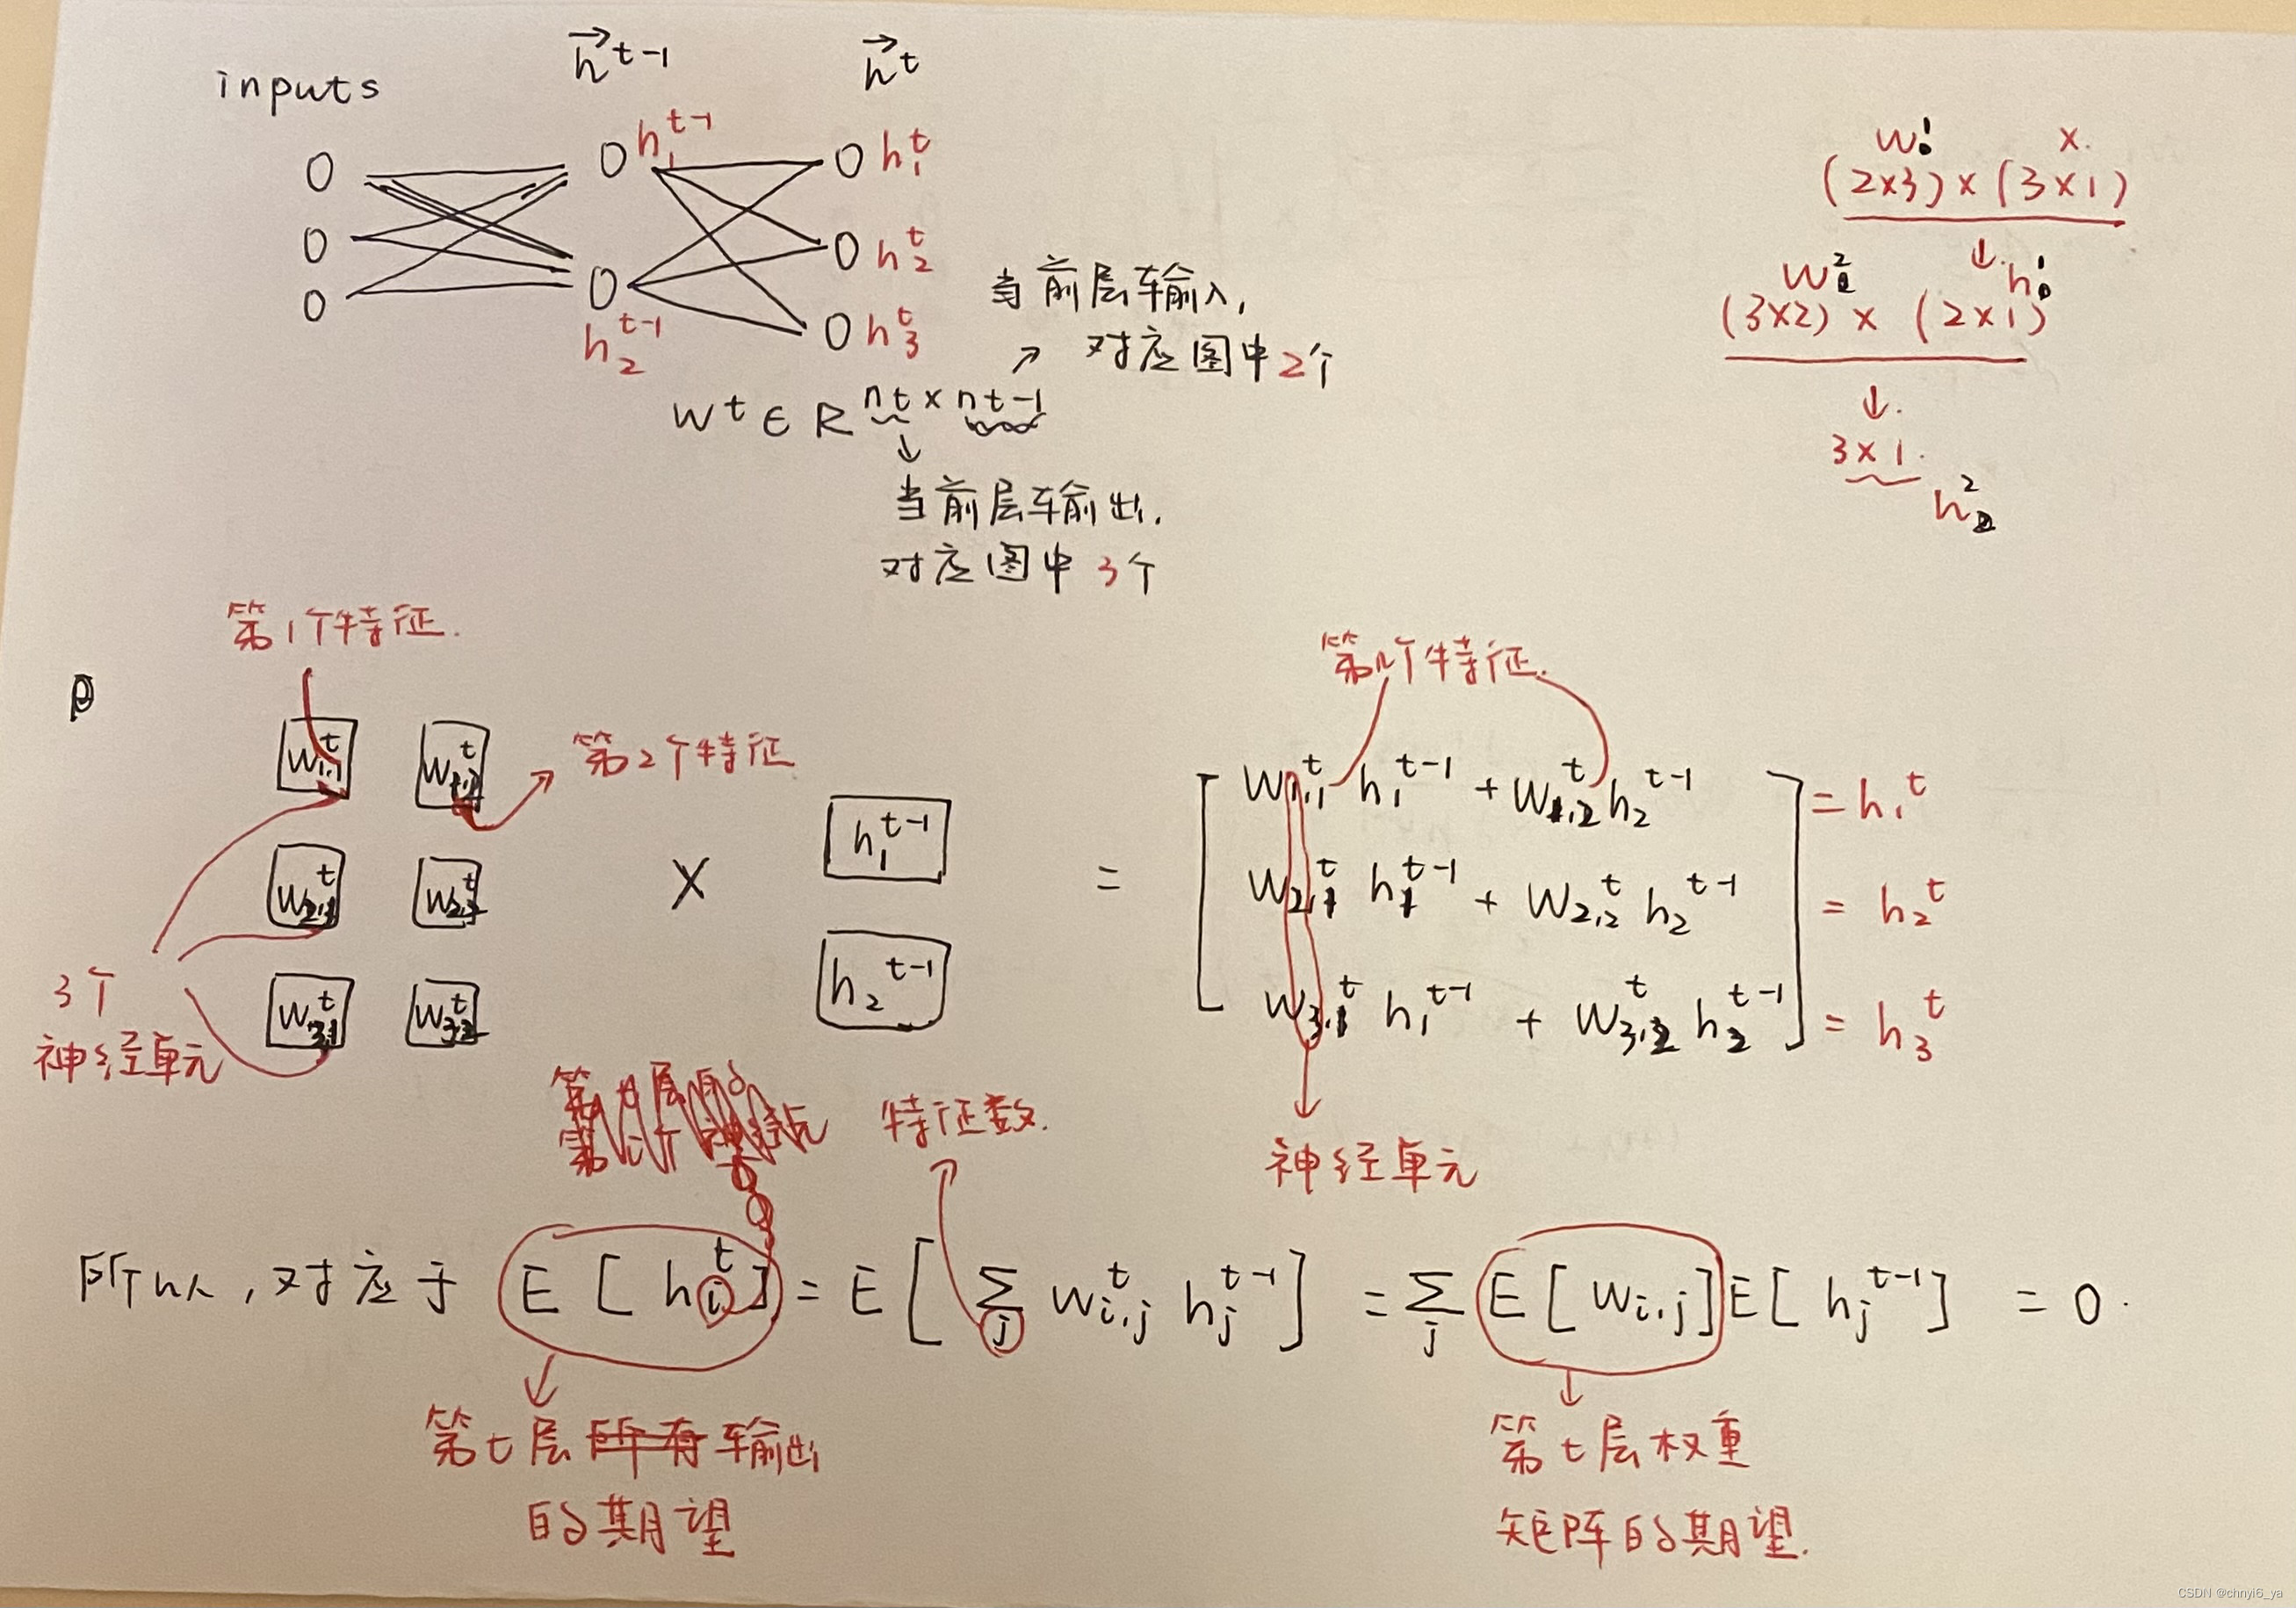 inputs
h^{t-1} h^t
h_1^{t-1} h_1^t
h_2^t
h_2^{t-1} h_3^t
当前层输入,
对应图中2个
W^t ∈ R^{n_t × n_{t-1}}
当前层输出,
对应图中3个
W^1 x.
(2×3)×(3×1)
↓
W^2 h^1
(3×2)×(2×1)
↓.
3×1.
h^2
第1个特征.
W_{1,1}^t W_{1,2}^t 第2个特征
W_{2,1}^t W_{2,2}^t
W_{3,1}^t W_{3,2}^t
3个
神经单元
×
h_1^{t-1}
h_2^{t-1}
=
第n个特征.
W_{1,1}^t h_1^{t-1} + W_{1,2}^t h_2^{t-1} = h_1^t
W_{2,1}^t h_1^{t-1} + W_{2,2}^t h_2^{t-1} = h_2^t
W_{3,1}^t h_1^{t-1} + W_{3,2}^t h_2^{t-1} = h_3^t
神经单元
特征数.
所以,对应于 E[h_i^t] = E[∑_j W_{i,j}^t h_j^{t-1}] = ∑_j E[W_{i,j}]E[h_j^{t-1}] = 0.
第t层所有输出
的期望
第t层权重
矩阵的期望.
CSDN @chnyi6_ya